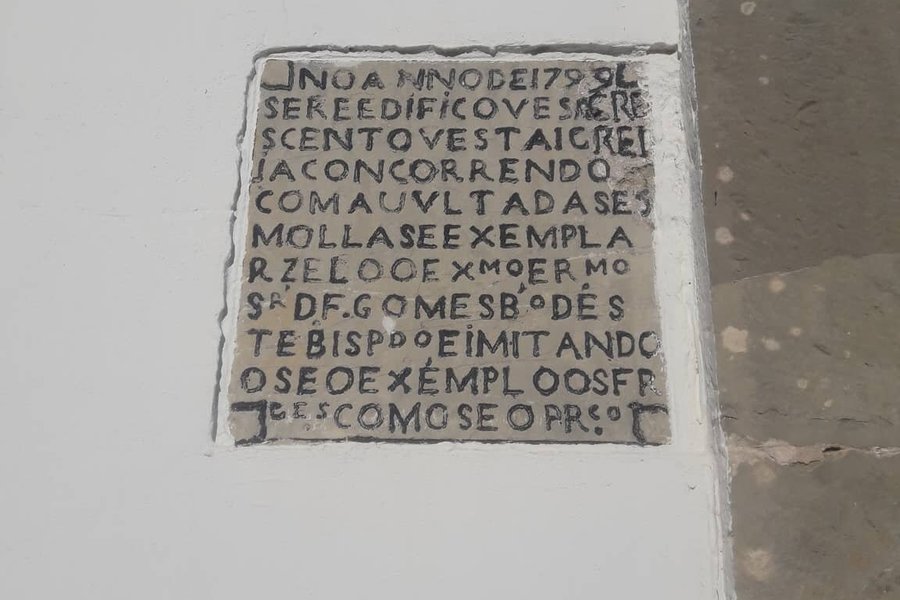 NOANNODE1799
SEREEDIFICOVESACRE
SCENTOVESTAIGREI
JACONCORRENDO
COMAUVLTADASES
MOLLASEEXEMPLA
RZELOOEXMOERMO
SR.DF.GOMESB.ODÉS
TEBISPDOEIMITANDO
OSEOEXÉMPLOOSFR
GESCOMOSEOPRCO